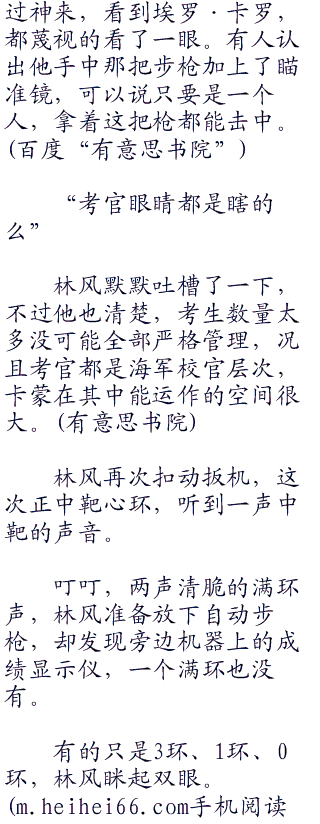 过神来，看到埃罗·卡罗，
都蔑视的看了一眼。有人认
出他手中那把步枪加上了瞄
准镜，可以说只要是一个
人，拿着这把枪都能击中。
(百度“有意思书院”)
“考官眼睛都是瞎的
么”
林风默默吐槽了一下，
不过他也清楚，考生数量太
多没可能全部严格管理，况
且考官都是海军校官层次，
卡蒙在其中能运作的空间很
大。(有意思书院)
林风再次扣动扳机，这
次正中靶心环，听到一声中
靶的声音。
叮叮，两声清脆的满环
声，林风准备放下自动步
枪，却发现旁边机器上的成
绩显示仪，一个满环也没
有。
有的只是3环、1环、0
环，林风眯起双眼。
(m.heihei66.com手机阅读